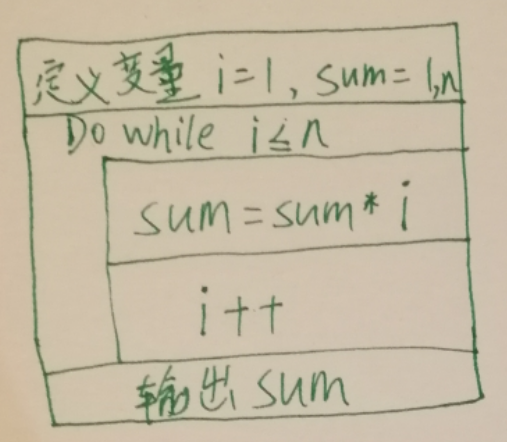 定义变量 i=1, sum=1,n
Do while i≤n
sum=sum* i
i++
输出 sum